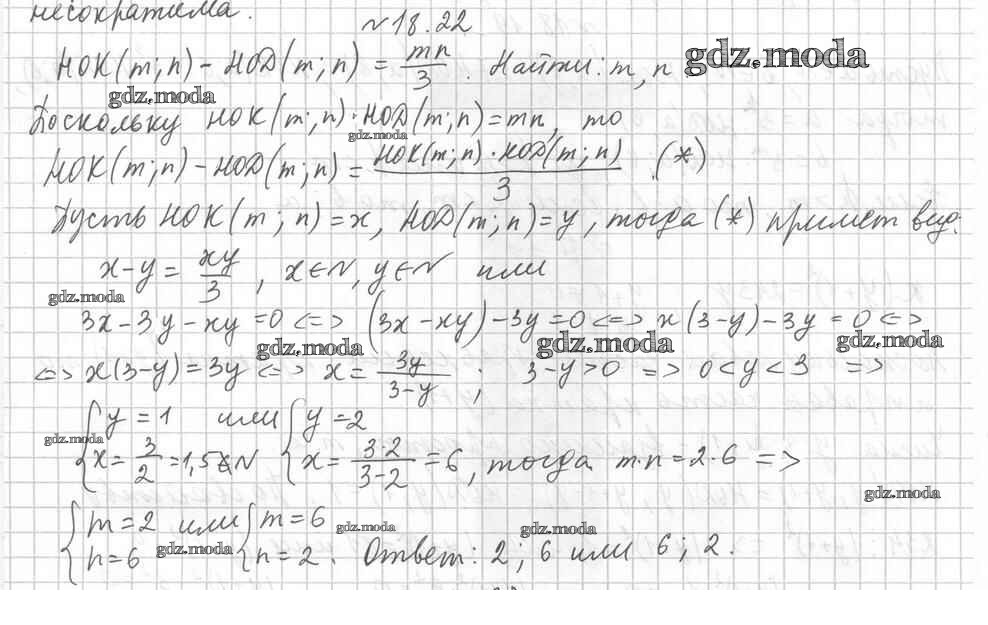 несократима.
№18.22
НОК(m;n) - НОД(m;n) = mn/3. Найти: m, n gdz.moda
gdz.moda
Поскольку НОК(m;n)·НОД(m;n)=mn, то
gdz.moda
НОК(m;n) - НОД(m;n) = НОК(m;n)·НОД(m;n)/3 (*)
Пусть НОК(m;n)=x, НОД(m;n)=y, тогда (*) примет вид:
x-y = xy/3, x∈N, y∈N или
gdz.moda
3x-3y-xy=0 <=> (3x-xy)-3y=0 <=> x(3-y)-3y=0 <=>
gdz.moda gdz.moda gdz.moda
<=> x(3-y)=3y <=> x = 3y/3-y; 3-y>0 => 0<y<3 =>
{y=1 или {y=2
gdz.moda
x=3/2=1,5∉N x=3·2/3-2=6, тогда m·n=2·6 =>
gdz.moda
{m=2 или {m=6
gdz.moda gdz.moda
n=6 gdz.moda n=2. Ответ: 2; 6 или 6; 2.